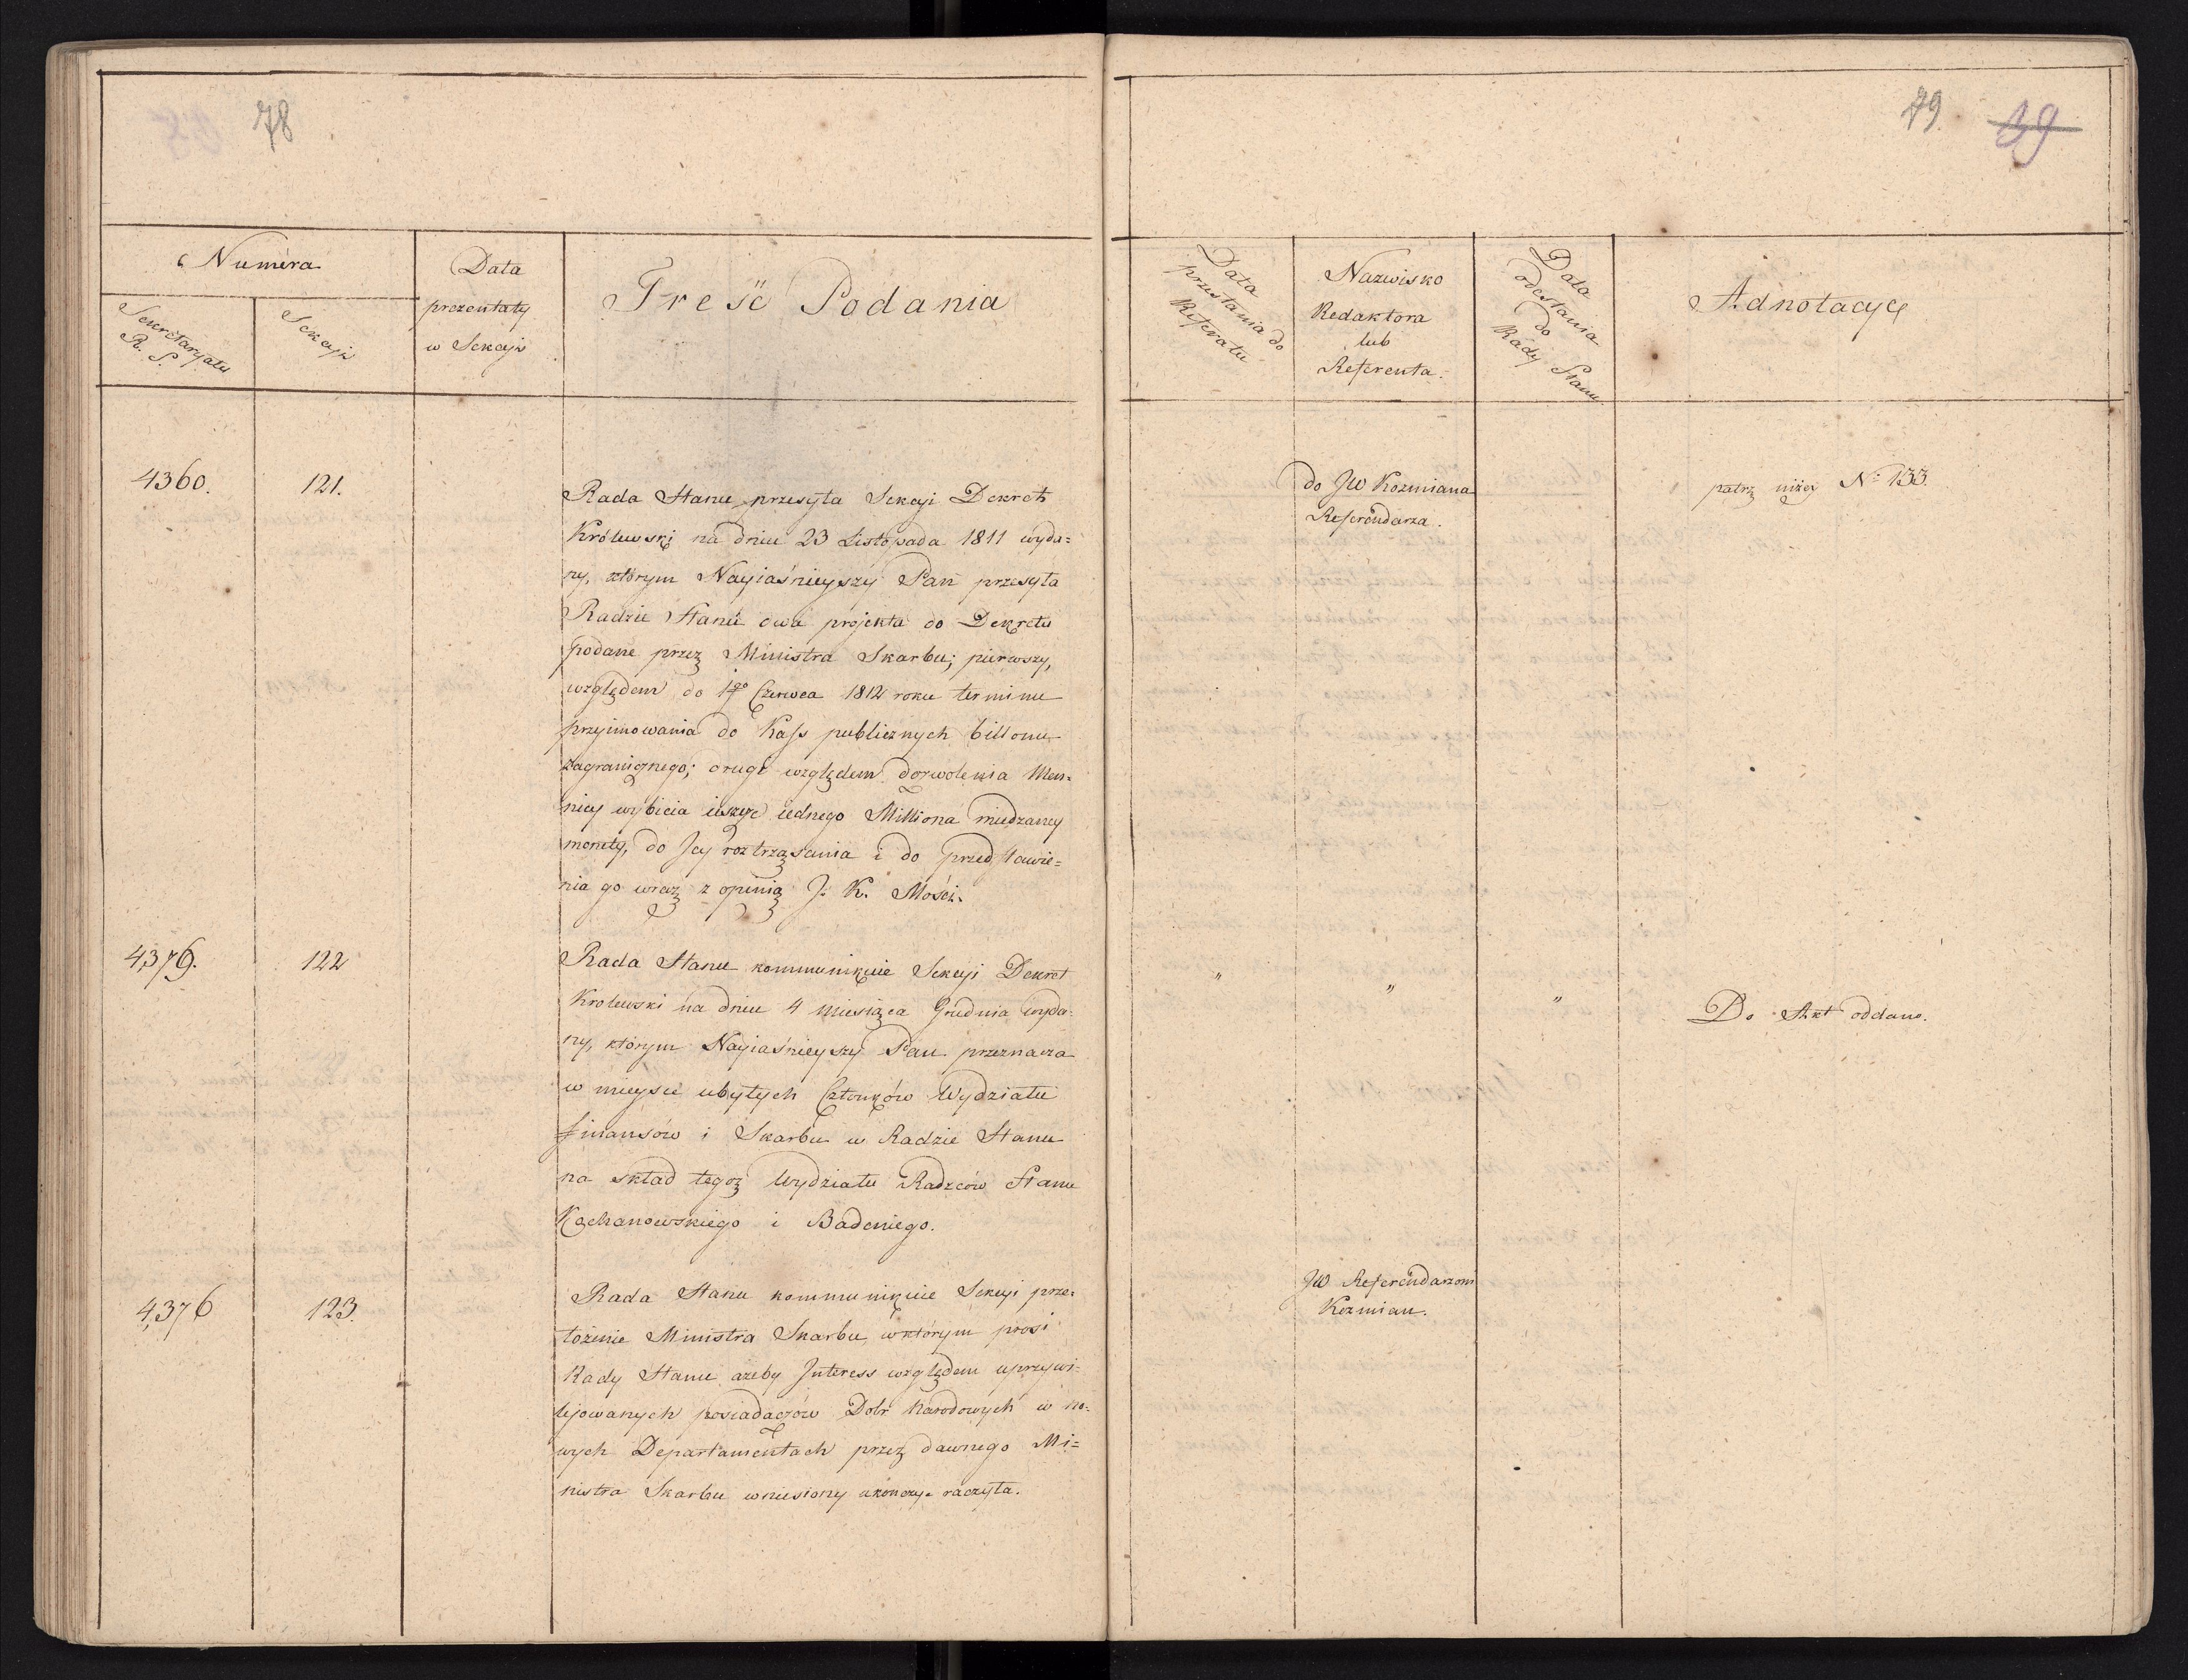 78
Numera
Data
prezentaty
w Sekcyi
Treść Podania
Sekretaryatu
R. S.
Sekcyi
4360.
121.
Rada Stanu przesyła Sekcyi Dekret
Królewski na dniu 23 Listopada 1811 wyda=
ny, którym Nayiaśnieyszy Pan przesyła
Radzie Stanu dwa projekta do Dekretu
podane przez Ministra Skarbu; pierwszy,
względem do 1go Czerwca 1812 roku terminu
przyimowania do Kass publicznych billonu
zagranicznego; drugi względem dozwolenia Men=
nicy wybicia ieszcze iednego Milliona miedzianey
monety, do Jey roztrząsania i do przedstawie=
nia go wraz z opinią J. K. Mości.
4379.
122
Rada Stanu kommunikuie Sekcyi Dekret
Krolewski na dniu 4 miesiąca Grudnia wyda=
ny, którym Nayiaśnieyszy Pan przeznacza
w mieysce ubyłych Członków Wydziału
finansów i Skarbu w Radzie Stanu
na skład tegoż Wydziału Radzców Stanu
Kochanowskiego i Badeniego.
4,376
123.
Rada Stanu kommunikuie Sekcyi prze=
łożenie Ministra Skarbu, w którym prosi
Rady Stanu ażeby Interess względem uprzywi=
lejowanych posiadaczów Dobr Narodowych w no=
wych Departamentach przez dawnego Mi=
nistra Skarbu wniesiony ukończyć raczyła.
79.
39
Data
przesłania do
Referatu
Nazwisko
Redaktora
lub
Referenta.
Data
odesłania
do
Rady Stanu.
Adnotacye
do JW Kozmiana
Referendarza.
patrz niżey No 133.
"
"
"
Do Akt oddano.
JW Referendarzom
Kozmian.